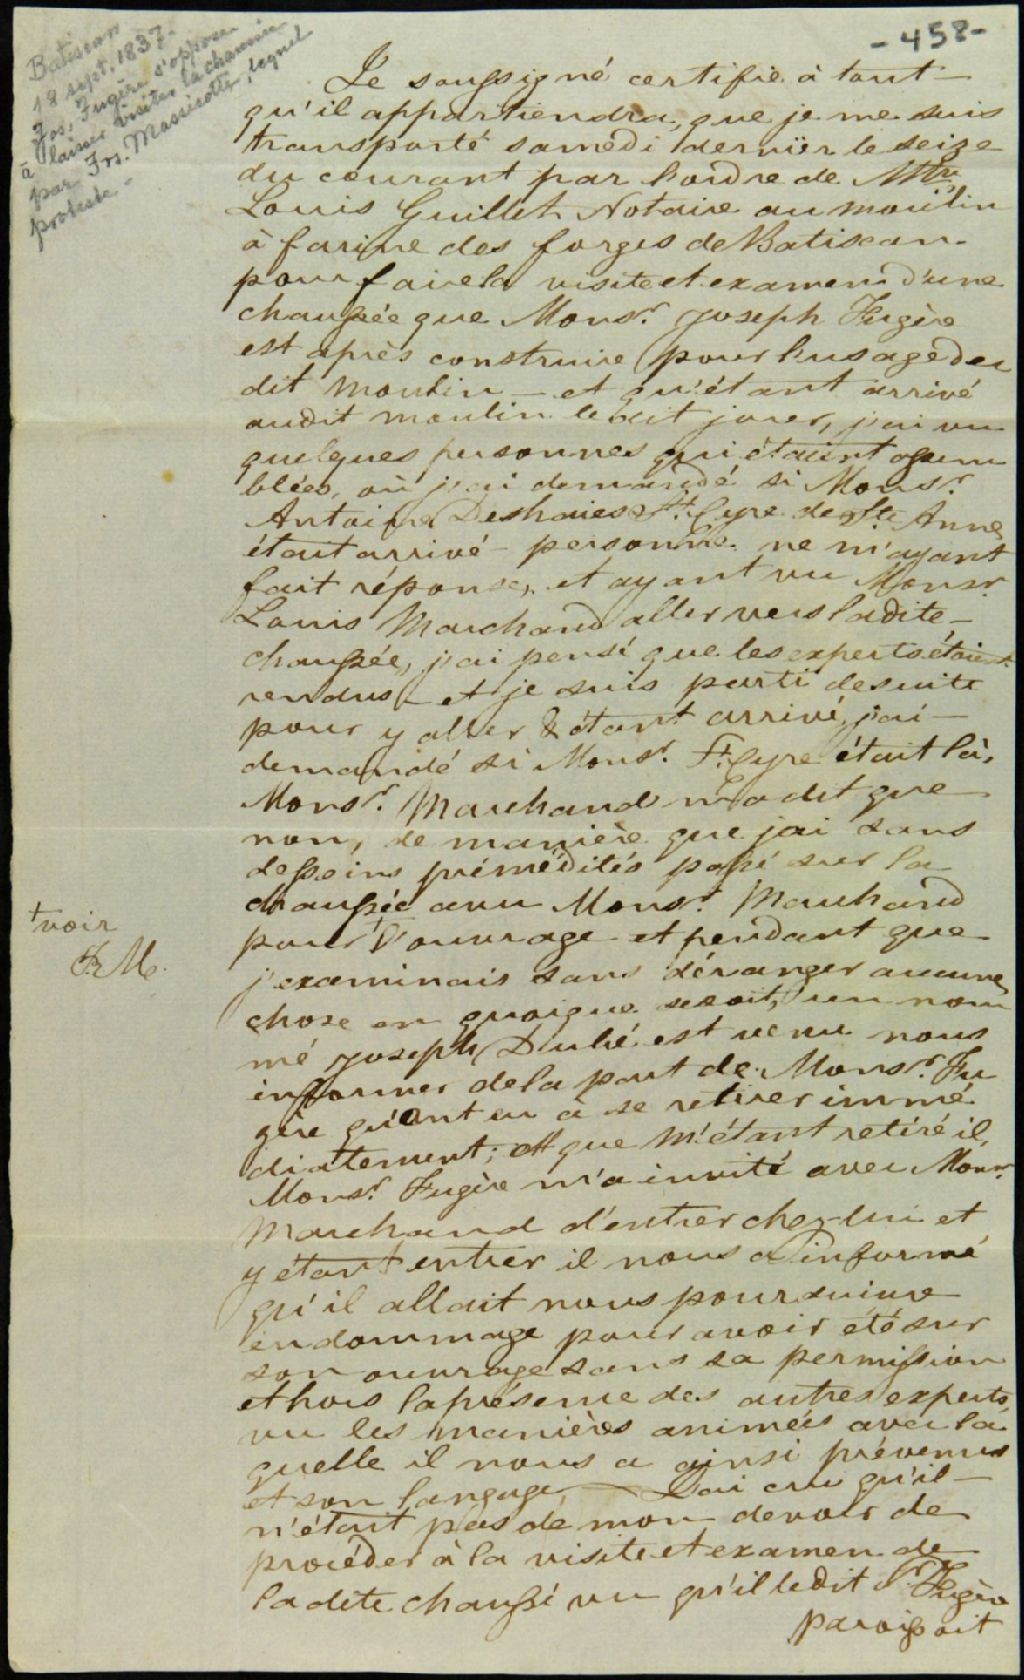 - 458 -
Batiscan
18 sept. 1837.
Jos. Fugère s'oppose
à laisser visiter la chaussée
par Frs. Massicotte, lequel
proteste -
Je soussigné certifie à tout
qu'il appartiendra, que je me suis
transporté samedi dernier le seize
du courant par l'ordre de Mtre
Louis Guillet Notaire au moulin
à farine des forges de Batiscan
pour faire la visite et examen d'une
chaussée que Monsr. Joseph Fugère
est après construire pour l'usage du
dit moulin - et qu'étant arrivé
audit moulin le dit jour, j'ai vu
quelques personnes qui étaient assem
blées, où j'ai demandé si Monsr.
Antoine Deshaies St. Cyre de Ste Anne
était arrivé - personne ne m'ayant
fait réponse, et ayant vu Monsr.
Louis Marchand aller vers la dite -
chaussée, j'ai pensé que les experts étaient
rendus - et je suis parti de suite
pour y aller & étant arrivé, j'ai -
demandé si Monsr. St. Cyre était là,
Monsr. Marchand m'a dit que
non, de manière que j'ai sans
desseins prémédités passé sur la
chaussée avec Monsr. Marchand
pour + l'ouvrage et pendant que
+ voir
F.M.
j'examinais sans déranger aucune
chose en quoique se soit, un nom
mé Joseph Dubé est venu nous
informer de la part de Monsr. Fu
gère qu'ont eu à se retirer immé
diatement; et que m'étant retiré il,
Monsr. Fugère m'a invité avec Monsr.
Marchand d'entrer chez lui et
y étant entrer il nous a informé
qu'il allait nous poursuivre
en dommage pour avoir été sur
son ouvrage sans sa permission
et hors la présence des autres experts
vu les manières animées avec la
quelle il nous a ainsi prévenus
et son langage, - J'ai cru qu'il -
n'était pas de mon devoir de
procéder à la visite et examen de
la dite chaussé vu qu'il ledit Sr. Fugère
paroissoit